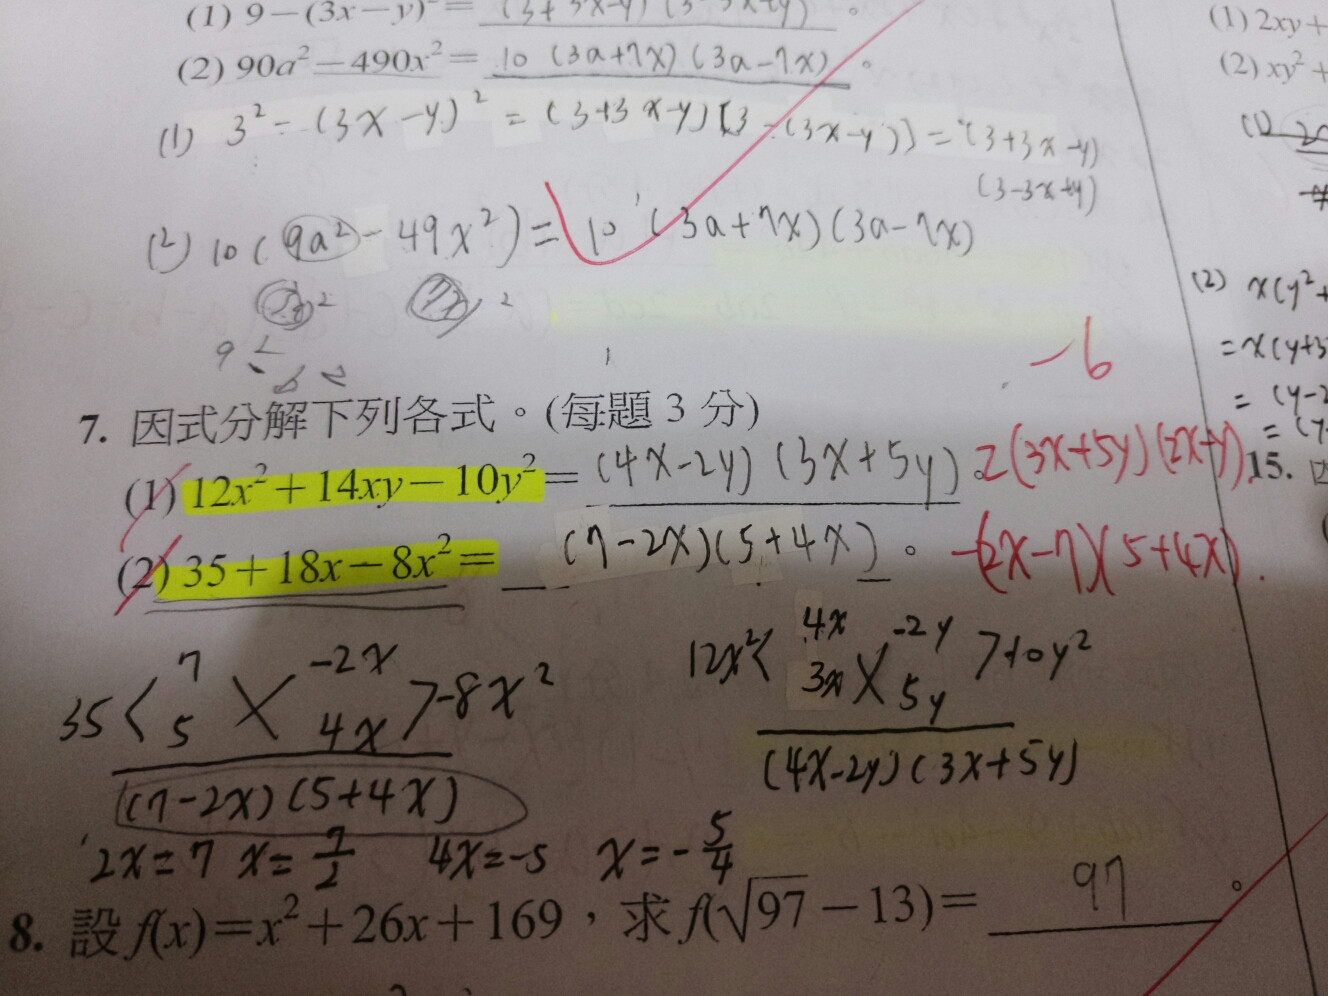 (1) 9-(3x-y)²= (3+3x-y)(3-3x+y)。
(2) 90a²-490x²= 10 (3a+7x)(3a-7x)。
(1) 3²-(3x-y)² = (3+3x-y)[3-(3x-y)] = (3+3x-y)
(3-3x+y)
(2) 10(9a²-49x²)= 10(3a+7x)(3a-7x)
-6
7. 因式分解下列各式。(每題 3 分)
(1) 12x²+14xy-10y²= (4x-2y)(3x+5y)。2(3x+5y)(2x-y).
(2) 35+18x-8x²= (7-2x)(5+4x)。-(2x-7)(5+4x).
35 < 7 5 × -2x 4x > -8x²
(7-2x)(5+4x)
2x=7 x=7/2 4x=-5 x=-5/4
12x² < 4x 3x × -2y 5y > -10y²
(4x-2y)(3x+5y)
8. 設 f(x)=x²+26x+169,求 f(√97-13)= 97。
(1) 2xy+
(2) xy²+
(1)
(2) x(y²+
=x(y+3
= (y-2
=
15.